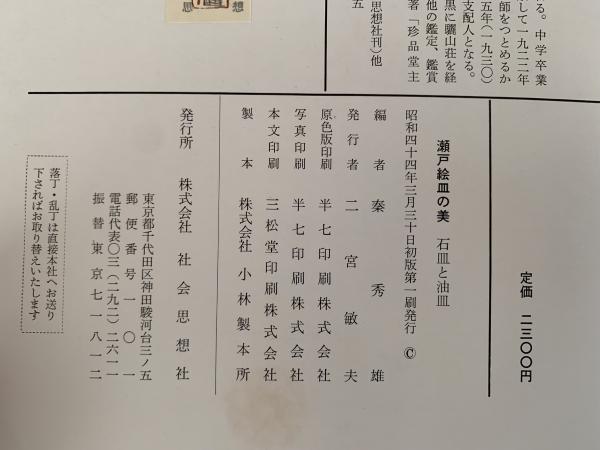 る。中学卒業
して一九二二年
師をつとめるか
五年（一九三〇）
支配人となる。
黒に驪山荘を経
他の鑑定、鑑賞
著「珍品堂主
思想社刊）他
五
思想
定価 二三〇〇円
瀬戸絵皿の美 石皿と油皿
昭和四十四年三月三十日初版第一刷発行 ©
編者 秦秀雄
発行者 二宮敏夫
原色版印刷 半七印刷株式会社
写真印刷 半七印刷株式会社
本文印刷 三松堂印刷株式会社
製本 株式会社小林製本所
発行所 株式会社 社会思想社
東京都千代田区神田駿河台三ノ五
郵便番号一〇一
電話代表〇三（二九二）二六一一
振替東京七一八一二
落丁・乱丁は直接本社へお送り
下さればお取り替えいたします